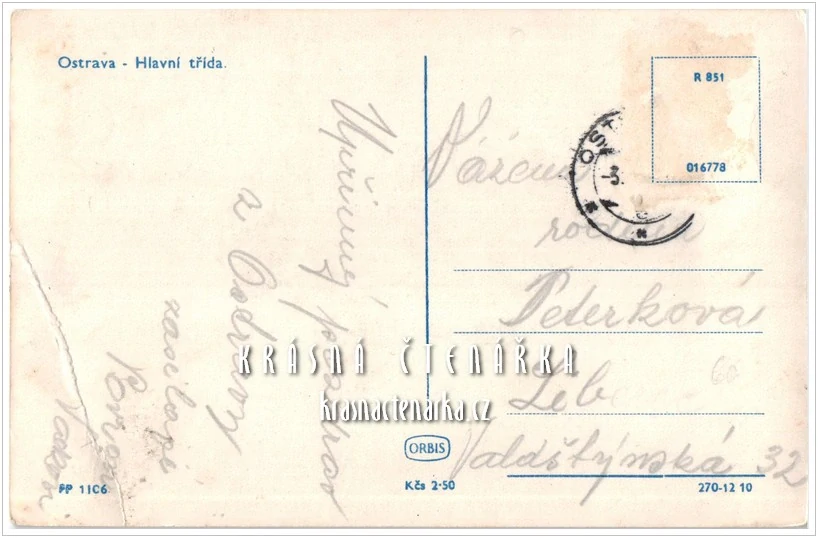 Ostrava - Hlavní třída.
R 851
016778
OST
-3.
Upřímný pozdrav
z Ostravy
zasílají
Vážená
rodina
Peterková
Valdštýnská 32
KRÁSNÁ ČTENÁŘKA
krasnactenarka.cz
ORBIS
FP 1106
Kčs 2·50
270-12 10